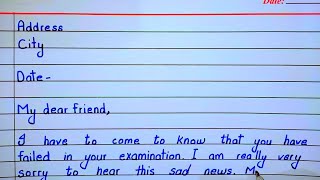 Date:
Address
City
Date-
My dear friend,
I have to come to know that you have
failed in your examination. I am really very
sorry to hear this sad news. M